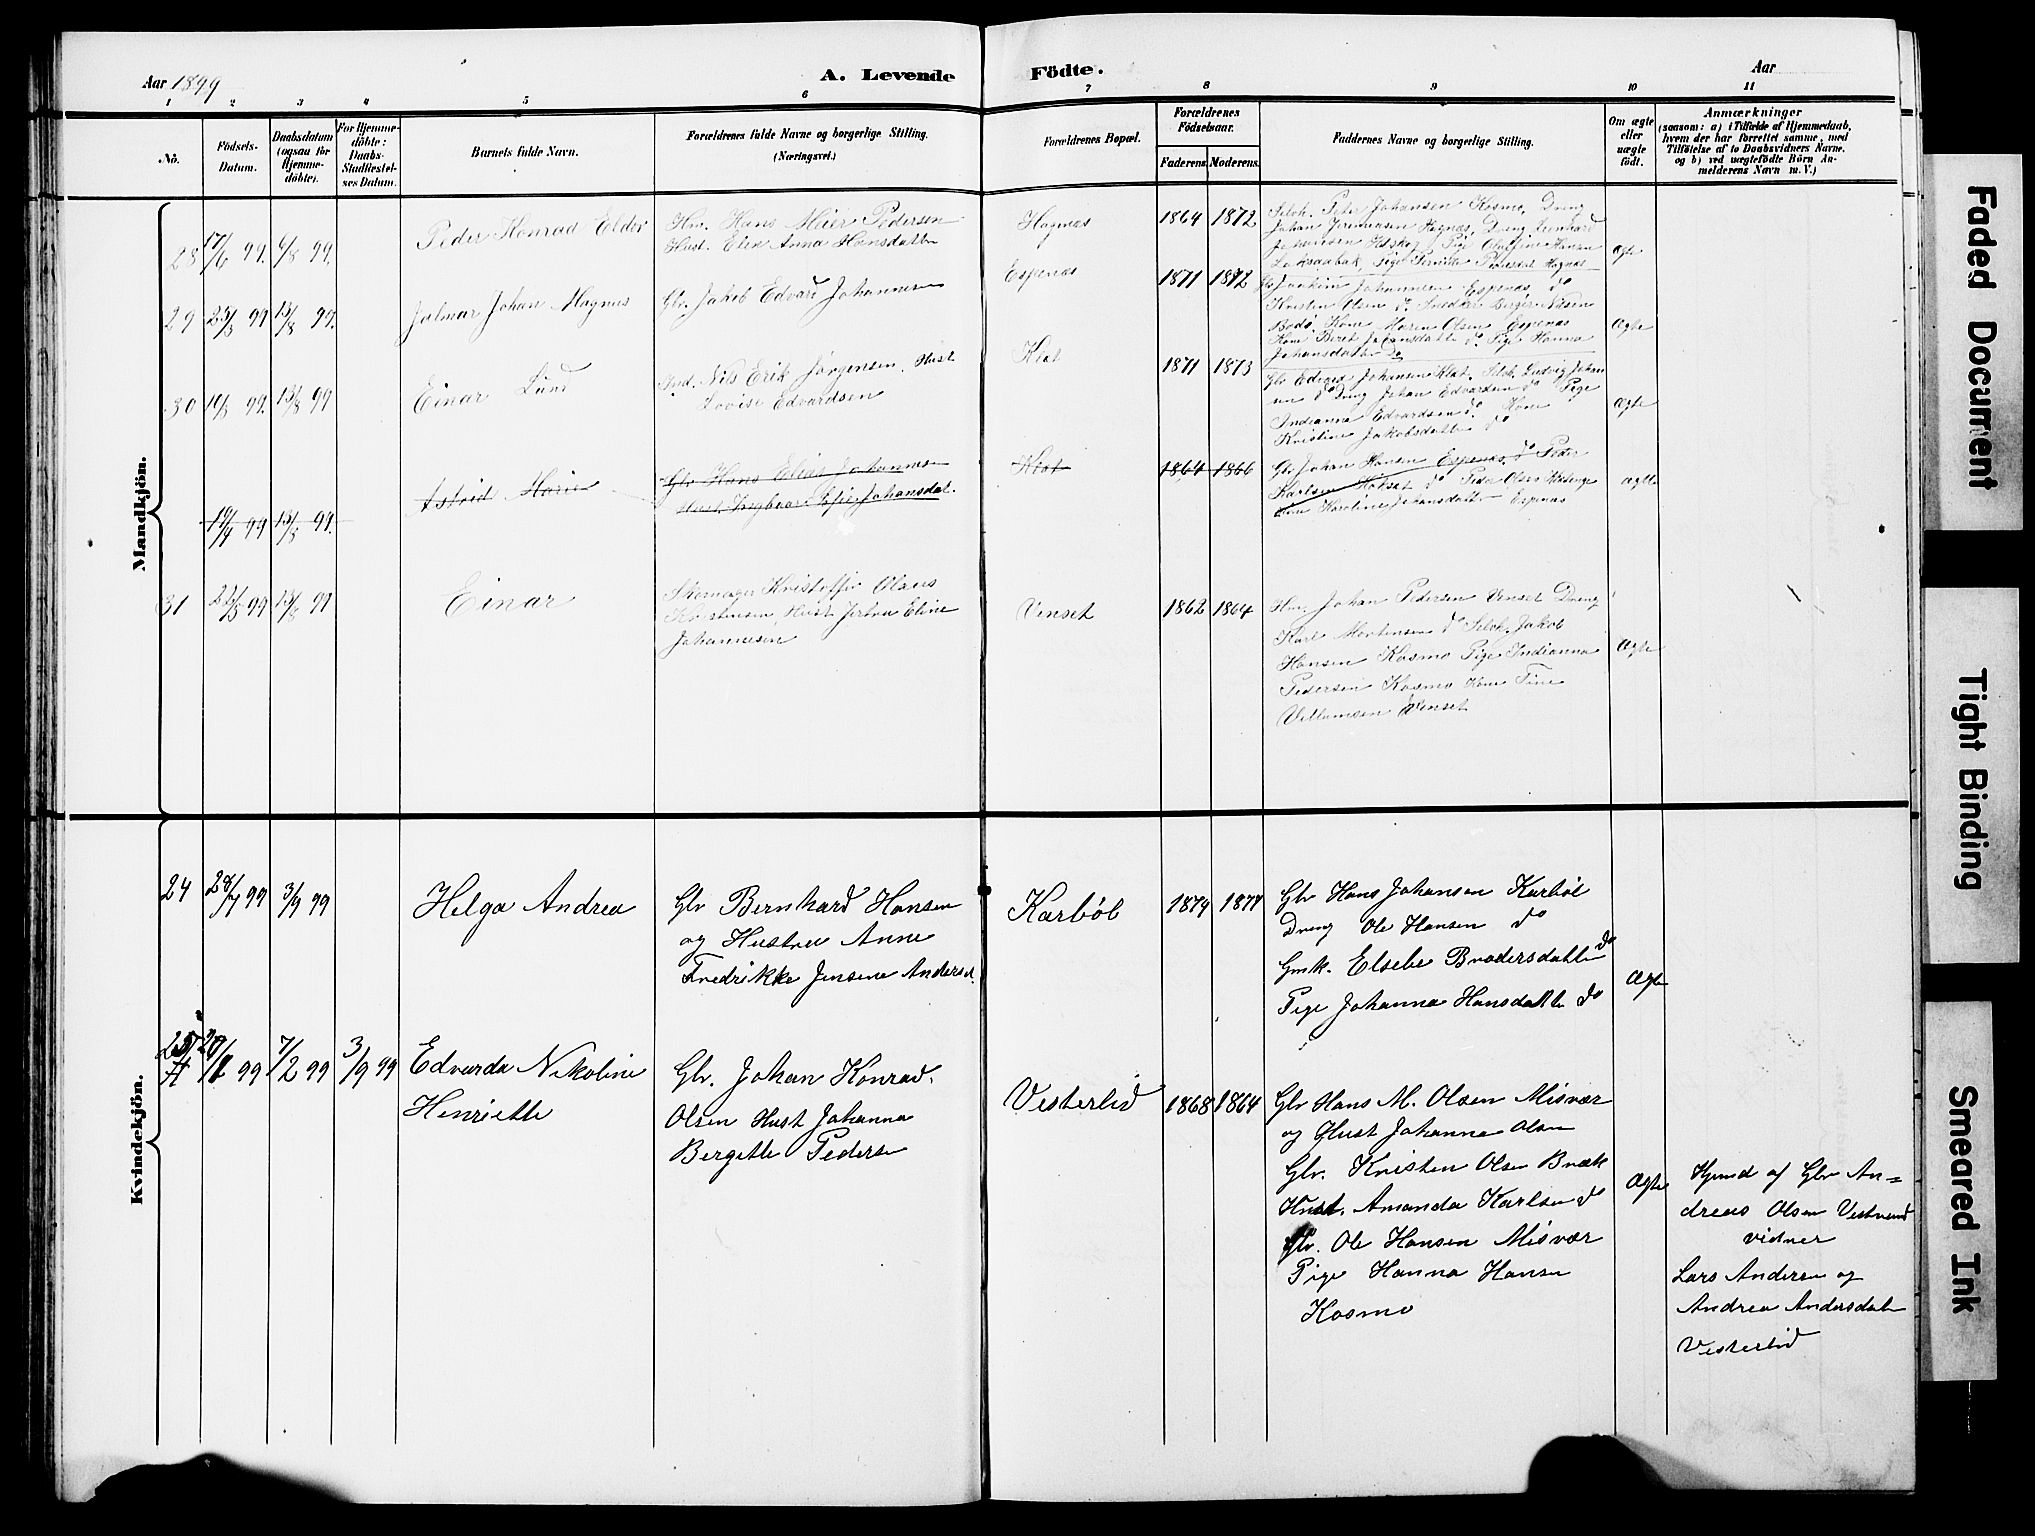 Aar 1899
A. Levende
Födte.
Aar
1 2 3 4 5 6 7 8 9 10 11
No.
Födsels-
Datum.
Daabsdatum
(ogsaa for
Hjemme-
döbte).
For Hjemme-
döbte:
Daabs-
Stadfæstel-
ses Datum.
Barnets fulde Navn.
Forældrenes fulde Navne og borgerlige Stilling.
(Næringsvei.)
Forældrenes Bopæl.
Forældrenes
Födselsaar.
Faderens. Moderens.
Faddernes Navne og borgerlige Stilling.
Om ægte
eller
uægte
födt.
Anmærkninger
(saasom: a) i Tilfælde af Hjemmedaab,
hvem der har forrettet samme, med
Tilföielse af to Daabsvidners Navne,
og b) ved uægtefödte Börn An-
melderens Navn m. V.)
Mandkjön.
28 17/6 99. 6/8 99.
Peder Konrad Elder
Hm. Hans Meier Pedersen
Hust. Elen Anna Hansdatter
Hognæs
1864 1872
Selvh. Peter Johansen Kosmo, Dreng
Johan Jeremiesen Hognæs, Dreng Leonhard
Ægte
29 25/3 99 13/8 99.
Jalmar Johan Magnus
Gbr. Jakob Edvard Johannesen
Espenæs
1871 1872
Gbr Joakim Johannesen Espenæs, do
Kristen Olsen do. Snedker Birger Nilsen
Bodø. Kone Maren Olsen Espenæs
Kone Beret Johansdatter do. Pige Hanna
Johansdatter do
Ægte
30 10/3 99. 13/8 99
Einar Lund
Ind. Nils Erik Jørgensen. Hust
Lovise Edvardsen
Klæt
1871 1873
Gbr Edvard Johansen Klæt. Selvh. Ludvig Johan
sen do Dreng Johan Edvardsen do Pige
Indianna Edvardsen do. Kone
Kristine Jakobsdatter do
Ægte
19/4 99 13/8 99.
Astrid Marie
Gbr Hans Elias Johannesen
Hust. Ingbaar Sofie Johansdat.
Klæt
1864 1866
Gbr Johan Hansen Espenæs, do Peder
Karlsen Kokset do Peder Olsen
Kone Karoline Johansdatter Espenæs
Ægte
31 22/5 99 13/8 99
Einar
Skomager Kristoffer Olaus
Kristensen, Hust Jertru Eline
Johannesen
Venset
1862 1864
Hm. Johan Pedersen Venset Dreng
Karl Mortensen do Selvh. Jakob
Hansen Kosmo Pige Indianna
Pedersen Kosmo Kone Tine
Villumsen Venset
Ægte
Kvindekjön.
24 28/7 99 3/9 99
Helga Andrea
Gbr Bernhard Hansen
og Hustru Anne
Fredrikke Jensine Andersd.
Karbøl
1874 1877
Gbr Hans Johansen Karbøl
Dreng Ole Hansen do
Gmk. Elsebe Brodersdatter do
Pige Johanna Hansdatter do
Ægte
25 20/1 99 7/2 99 3/9 99
Edvarda Nikoline
Henriette
Gbr. Johan Konrad
Olsen Hust Johanna
Bergette Pedersen
Vesterlid
1868 1864
Gbr Hans M. Olsen Misvær
og Hust Johanna Olsen
Gbr. Kristen Olsen Bræk
Hust. Amanda Karlsen do
Gbr. Ole Hansen Misvær
Pige Hanna Hansen
Kosmo
Ægte
Hjemd af Gbr An=
dreas Olsen
vidner
Lars Andersen og
Andrea Andersdatter
Vesterlid
Faded Document
Tight Binding
Smeared Ink